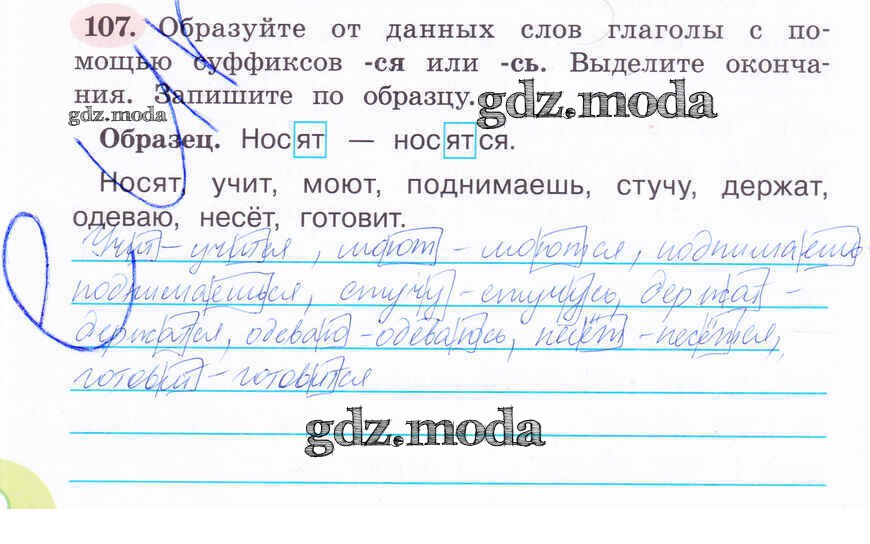 107. Образуйте от данных слов глаголы с по-
мощью суффиксов -ся или -сь. Выделите оконча-
ния. Запишите по образцу.
gdz.moda
gdz.moda
Образец. Носят — носятся.
Носят, учит, моют, поднимаешь, стучу, держат,
одеваю, несёт, готовит.
Учит - учится, моют - моются, поднимаешь -
поднимаешься, стучу - стучусь, держат -
держатся, одеваю - одеваюсь, несёт - несётся,
готовит - готовится
gdz.moda